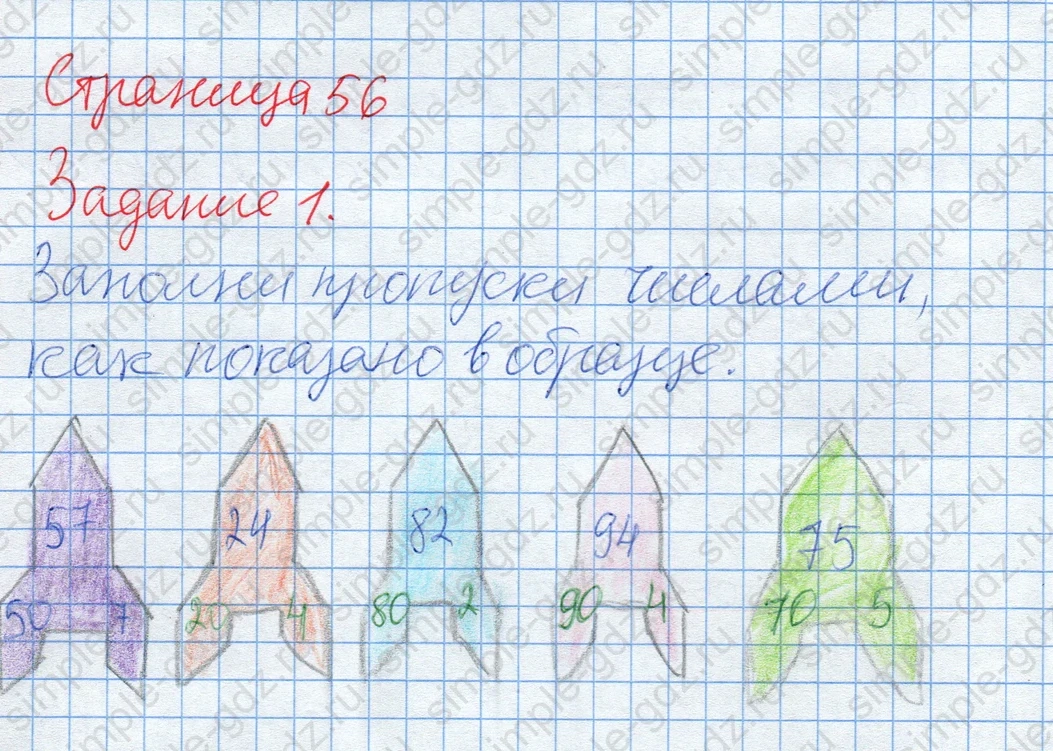 Страница 56
Задание 1.
Заполни пропуски числами,
как показано в образце.
57 24 82 94 75
50 7 20 4 80 2 90 4 70 5
simple-gdz.ru